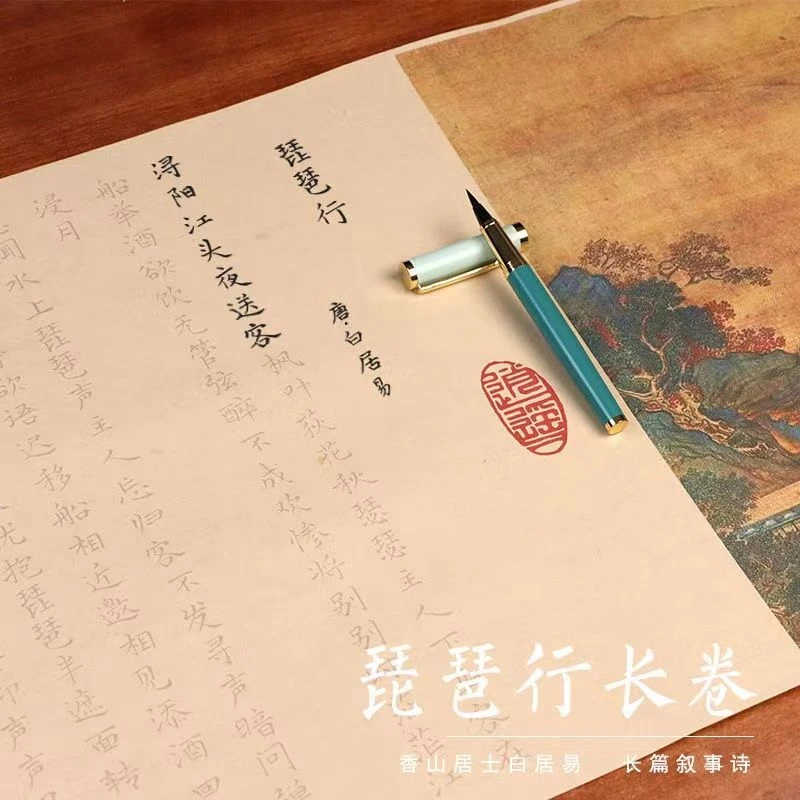 琵琶行
唐·白居易
浔阳江头夜送客枫叶荻花秋瑟瑟主人下客在
船举酒欲饮无管弦醉不成欢惨将别别茫江
浸月
闻水上琵琶声主人忘归客不发寻声暗问弹
欲语迟移船相近邀相见添酒回
犹抱琵琶半遮面转
声声
逍遥
琵琶行长卷
香山居士白居易 长篇叙事诗